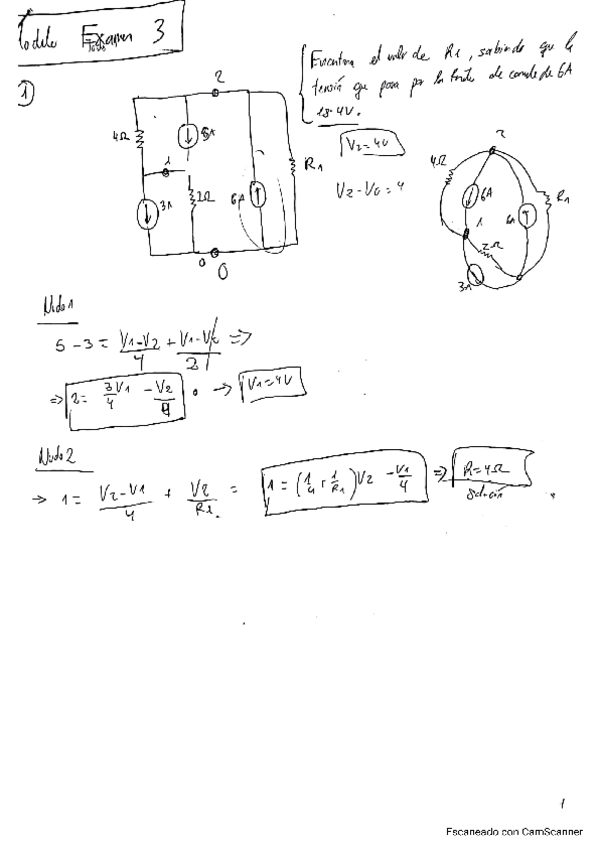 Modelo Examen 3
1
Encontrar el valor de R1, sabiendo que la
tensión que pasa por la fuente de corriente de 6A
es 4V.
V2=4V
V2-V0=4
2
4Ω
5A
1
3A
2Ω
6A
R1
0
0
2
4Ω
6A
6A
R1
1
2Ω
3A
Nodo 1
5-3 = V1-V2/4 + V1-V0/2 =>
=> 2 = 3V1/4 - V2/4 . -> V1=4V
Nodo 2
-> 1 = V2-V1/4 + V2/R1 = 1 = (1/4 + 1/R1)V2 - V1/4 => R=4Ω
Solución
1
Escaneado con CamScanner